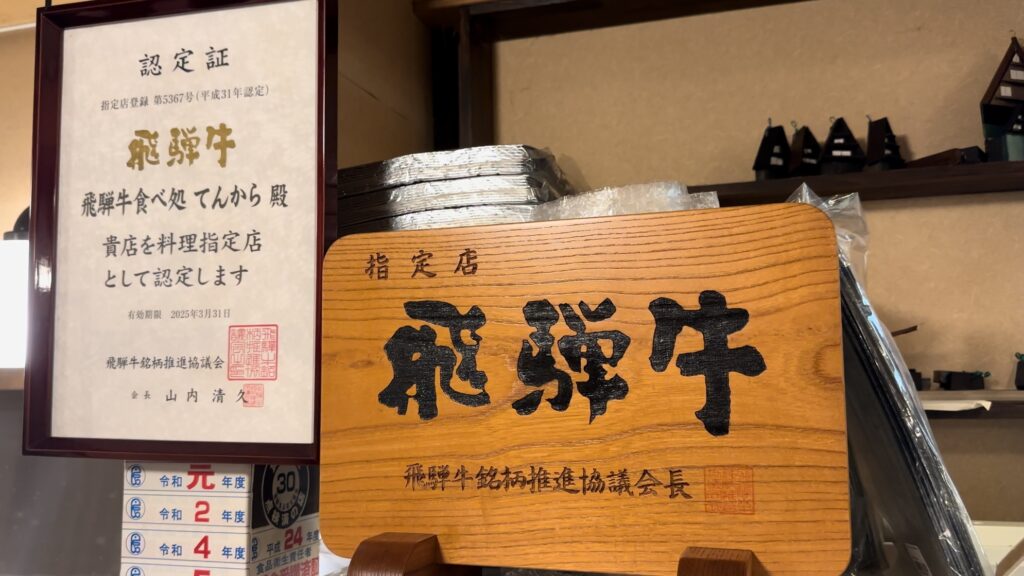 認定証
指定店登録 第5367号(平成31年認定)
飛騨牛
飛騨牛食べ処 てんから 殿
貴店を料理指定店
として認定します
有効期限 2025年3月31日
飛騨牛銘柄推進協議会
会長 山内清久
指定店
飛騨牛
飛騨牛銘柄推進協議会長
令和 元 年度
令和 2 年度
令和 4 年度
30
平成 24 年度
食品衛生責任者